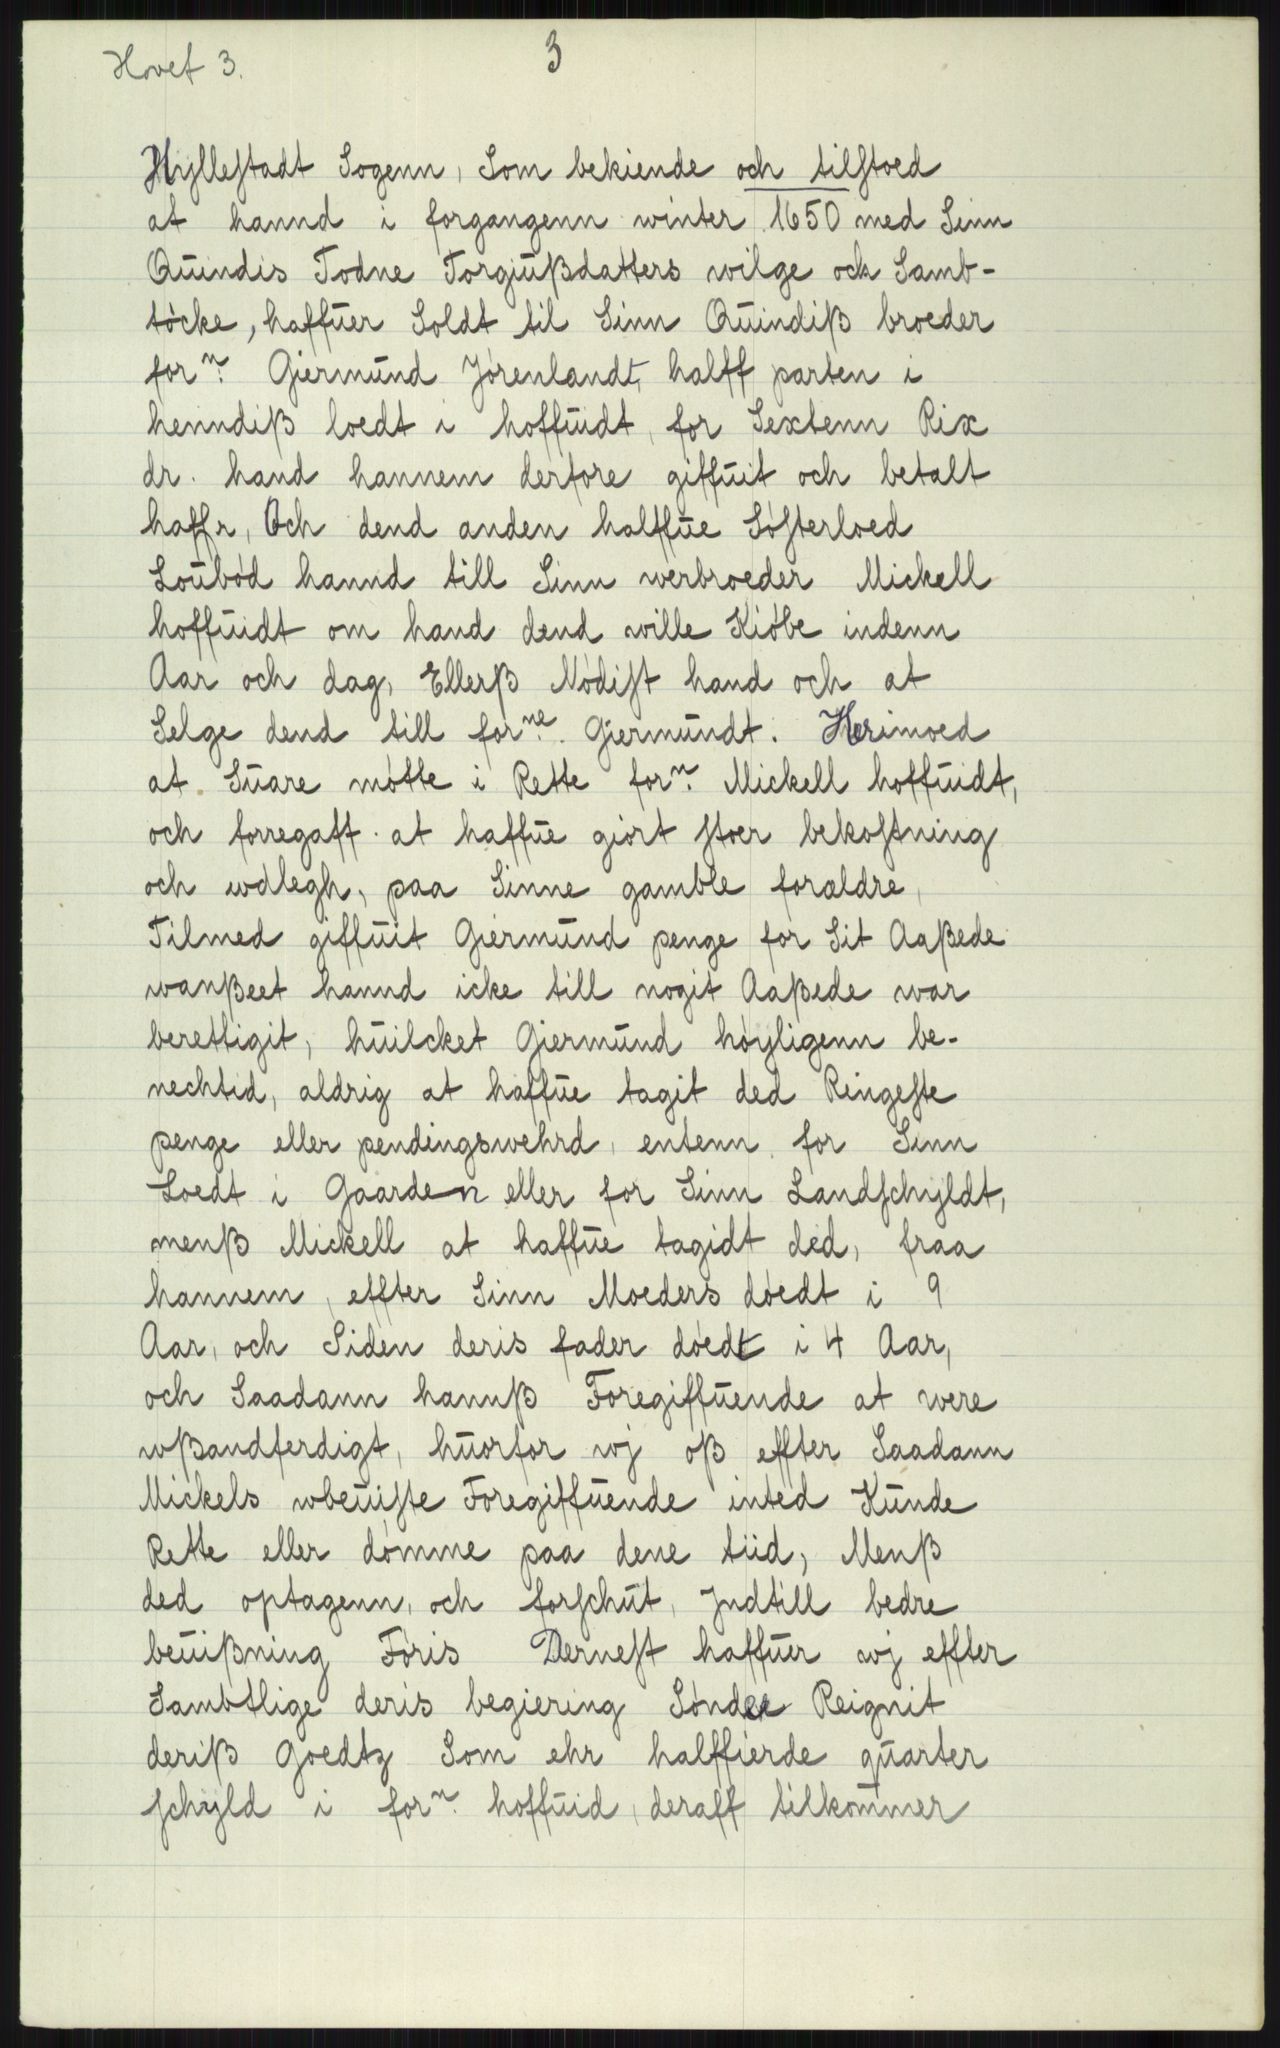 Hovet 3.
3
Hyllestadt Sogenn, Som bekiende och tilstoed
at hannd i forgangenn winter 1650 med Sinn
Quindis Todne Torgiußdatters wilge och Samb-
töcke, haffuer Soldt til Sinn Quindiß broeder
forⁿ. Giermund Jörenlandt, halff parten i
henndiß loedt i hoffuidt, for Sextenn Rix
dr. hand hannem derfore giffuit och betalt
haffr, Och dend anden halffue Söfterloed
Loubød hannd till Sinn werbroeder Mickell
hoffuidt om hand dend wille Kiöbe indenn
Aar och dag, Ellerß Nödist hand och at
Selge dend till forⁿᵉ. Giermundt. Herimoed
at Suare møtte i Rette forⁿ. Mickell hoffuidt,
och forregaff at haffue giort stoer bekostning
och wdlegh, paa Sinne gamble forældre,
Tilmed giffuit Giermund penge for Sit Aaßede
wanßeet hannd icke till nogit Aaßede war
berettigit, huilcket Giermund höyligenn be-
nechtid, aldrig at haffue tagit ded Ringeste
penge eller pendingswehrd, entenn for Sinn
Loedt i Gaarden eller for Sinn Landschyldt,
menß Mickell at haffue tagidt ded, fraa
hannem, effter Sinn Moeders døedt i 9
Aar, och Siden deris fader døedt i 4 Aar,
och Saadann hannß Foregiffuende at were
wßandferdigt, huorfor wj oß effter Saadann
Mickels wbeuiste Foregiffuende inted Kunde
Rette eller dømme paa dene tiid, Menß
ded optagenn, och forschut, Jndtill bedre
beuißning Føris Dernest haffuer wj effter
Sambtlige deris begiering Sønder Reignit
deriß Goedtz Som ehr halffierde quarter
schyld i forⁿ. hoffuid, deraff tilkommer